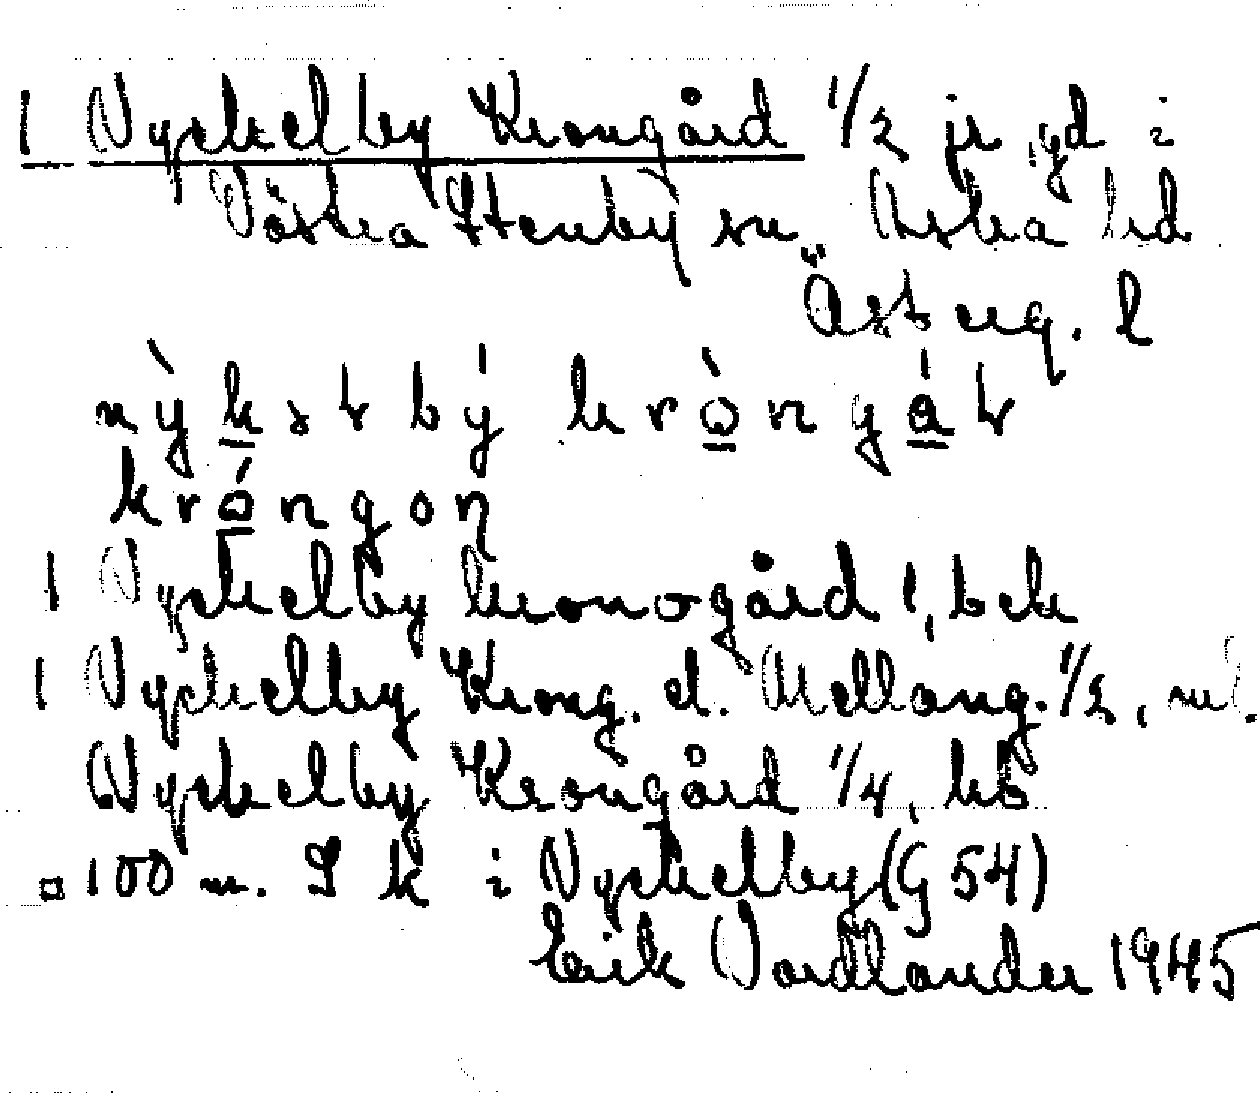 1 Nyckelby Krongård 1/2 jr, gd i
Västra Stenby sn, Aska hd
Österg. l
nỳkstbý krò̱ngá̱t
kró̱ngoŋ
1 Nyckelby kronogård 1, bek
1 Nyckelby Krong. el. Mellang. 1/2,
Nyckelby Krongård 1/4, kb
¤ 100 m. S k i Nyckelby (G 54)
Erik Vordlander 1945